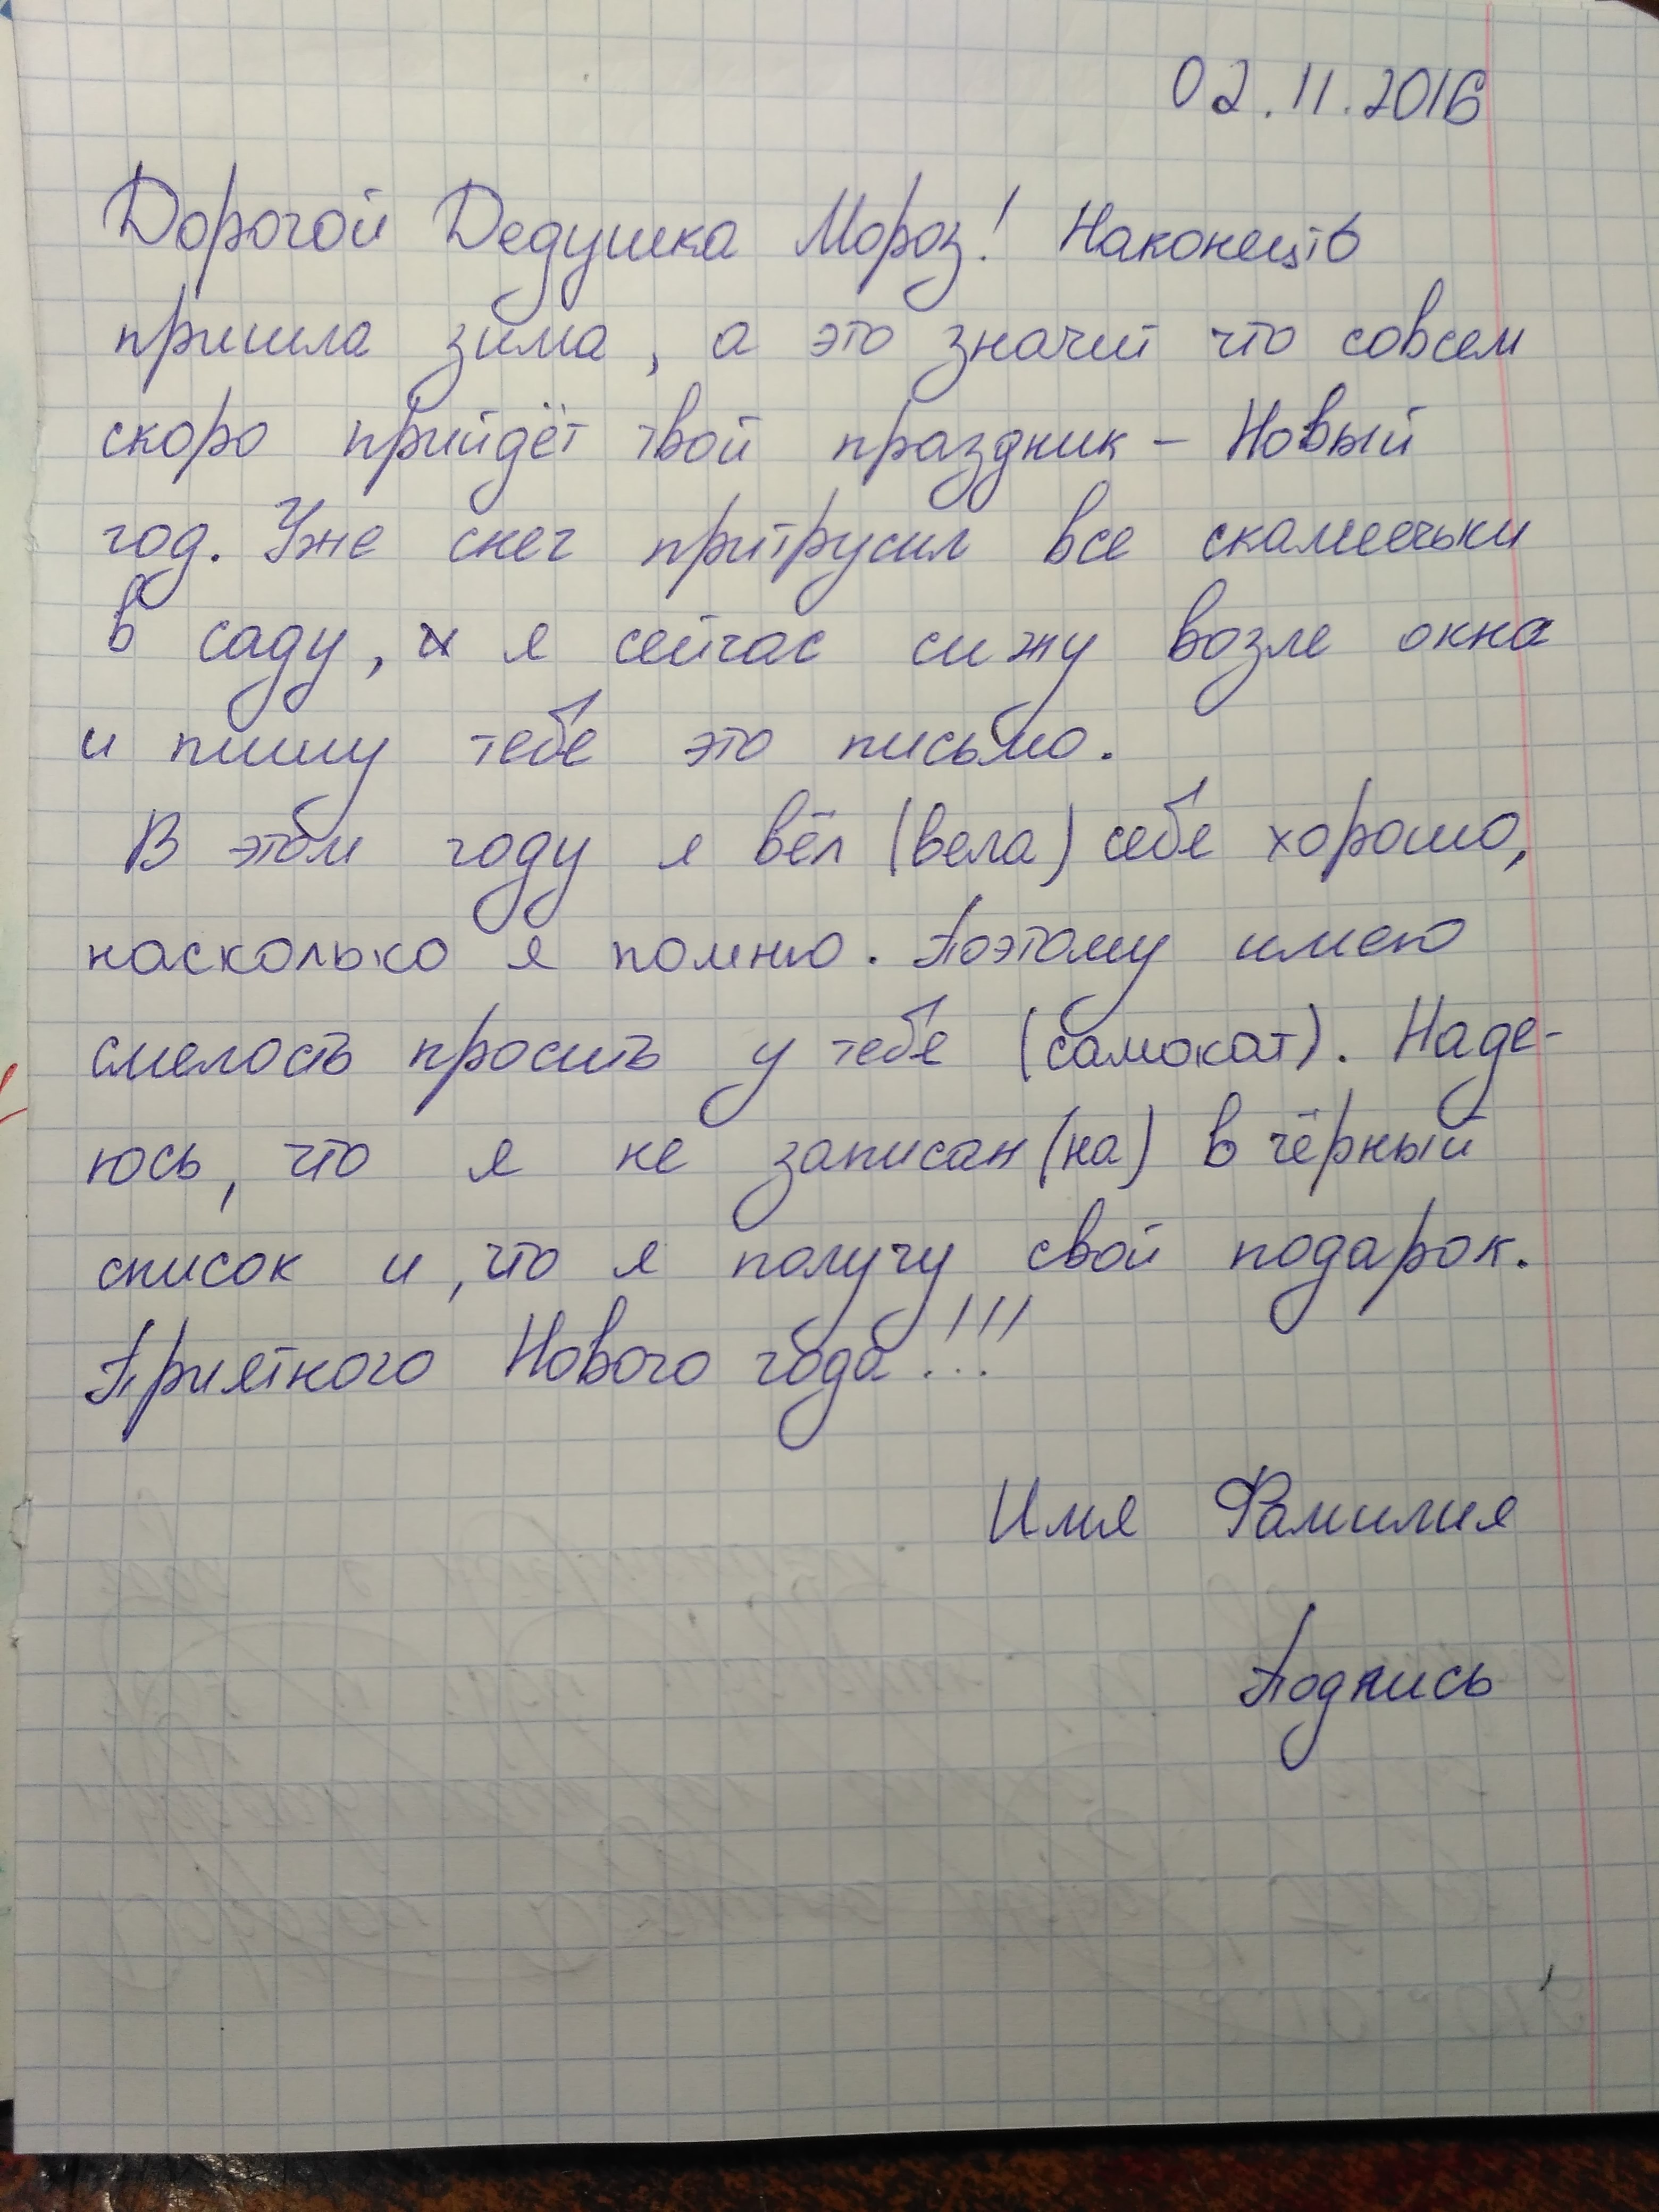 02.11.2016
Дорогой Дедушка Мороз! Наконецто
пришла зима, а это значит что совсем
скоро прийдёт твой праздник – Новый
год. Уже снег притрусил все скамеечьки
в саду, и я сейчас сижу возле окна
и пишу тебе это письмо.
В этом году я вёл (вела) себе хорошо,
насколько я помню. Поэтому имею
смелость просить у тебе (самокат). Наде-
юсь, что я не записан(на) в чёрный
список и, что я получу свой подарок.
Приятного Нового года!!!
Имя Фамилия
Подпись